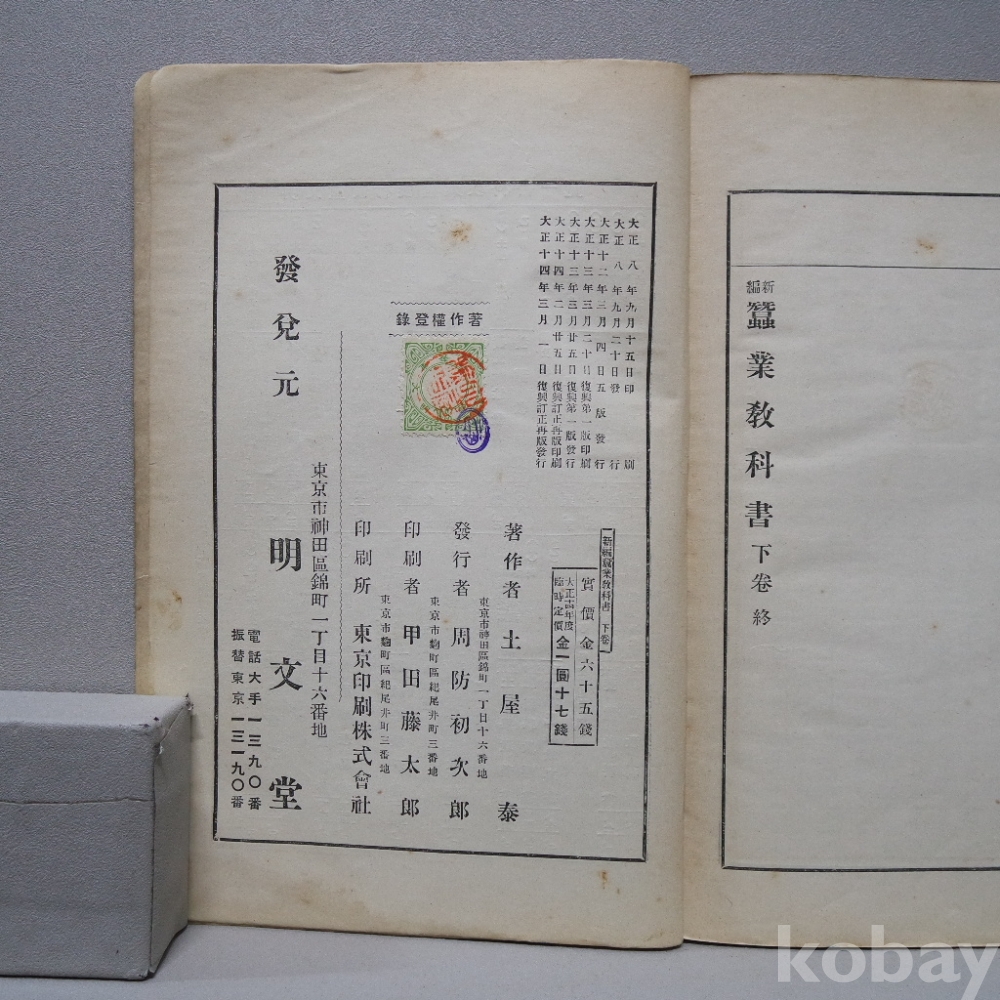 新編 蠶業教科書 下卷 終
大正八年九月十五日印刷
大正八年九月二十日發行
大正十二年三月四日五版發行
大正十三年三月二十日復興第一版印刷
大正十三年三月廿五日復興第一版發行
大正十四年二月廿五日復興訂正再版印刷
大正十四年三月一日復興訂正再版發行
新編蠶業教科書 下卷
實價金六十五錢
大正十四年度
臨時定價 金一圓十七錢
著作權登錄
著作者 土屋泰
東京市神田區錦町一丁目十六番地
發行者 周防初次郎
東京市麴町區紀尾井町三番地
印刷者 甲田藤太郎
東京市麴町區紀尾井町三番地
印刷所 東京印刷株式會社
發兌元
東京市神田區錦町一丁目十六番地
明文堂
電話大手一三九〇番
振替東京一三一九〇番
kobay